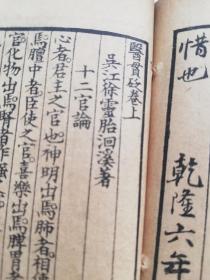 惜也
乾隆六年
醫貫砭卷上
吳江徐靈胎洄溪著
十二官論
心者。君主之官也。神明出焉。肺者。相傅
焉。膻中者。臣使之官。喜樂出焉。脾胃者
官。化物出焉。腎者。作強